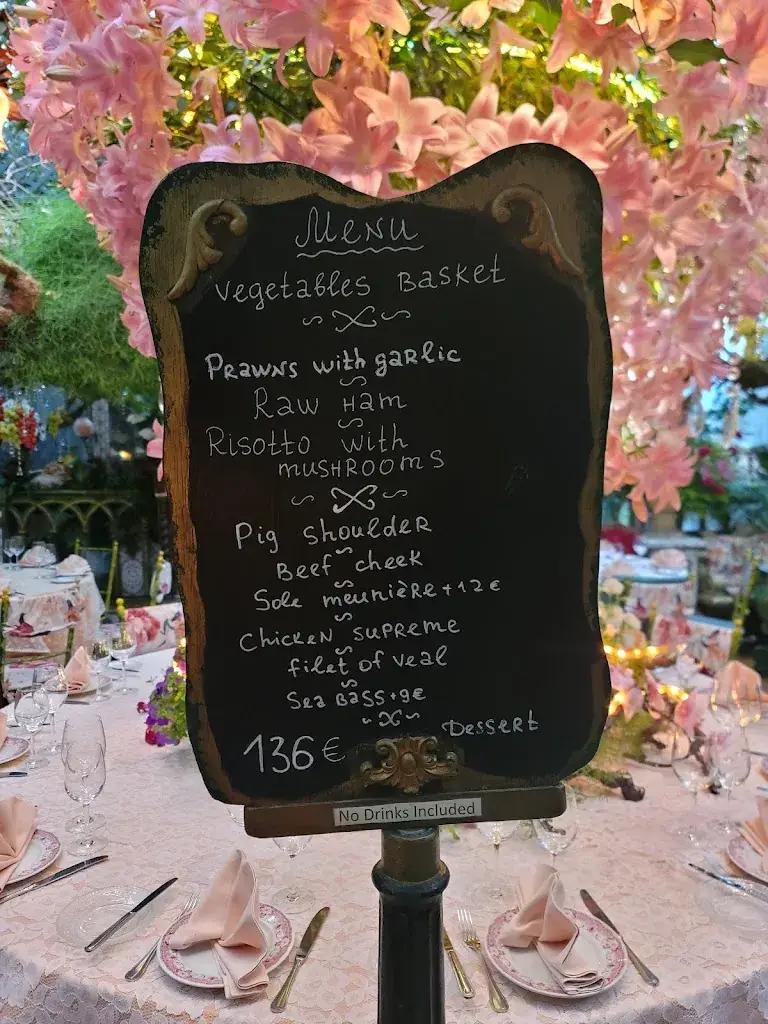 MENU
Vegetables Basket
Prawns with garlic
Raw Ham
Risotto with
mushrooms
Pig shoulder
Beef cheek
Sole meunière + 12 €
Chicken supreme
filet of veal
Sea Bass + 9€
Dessert
136 €
No Drinks Included